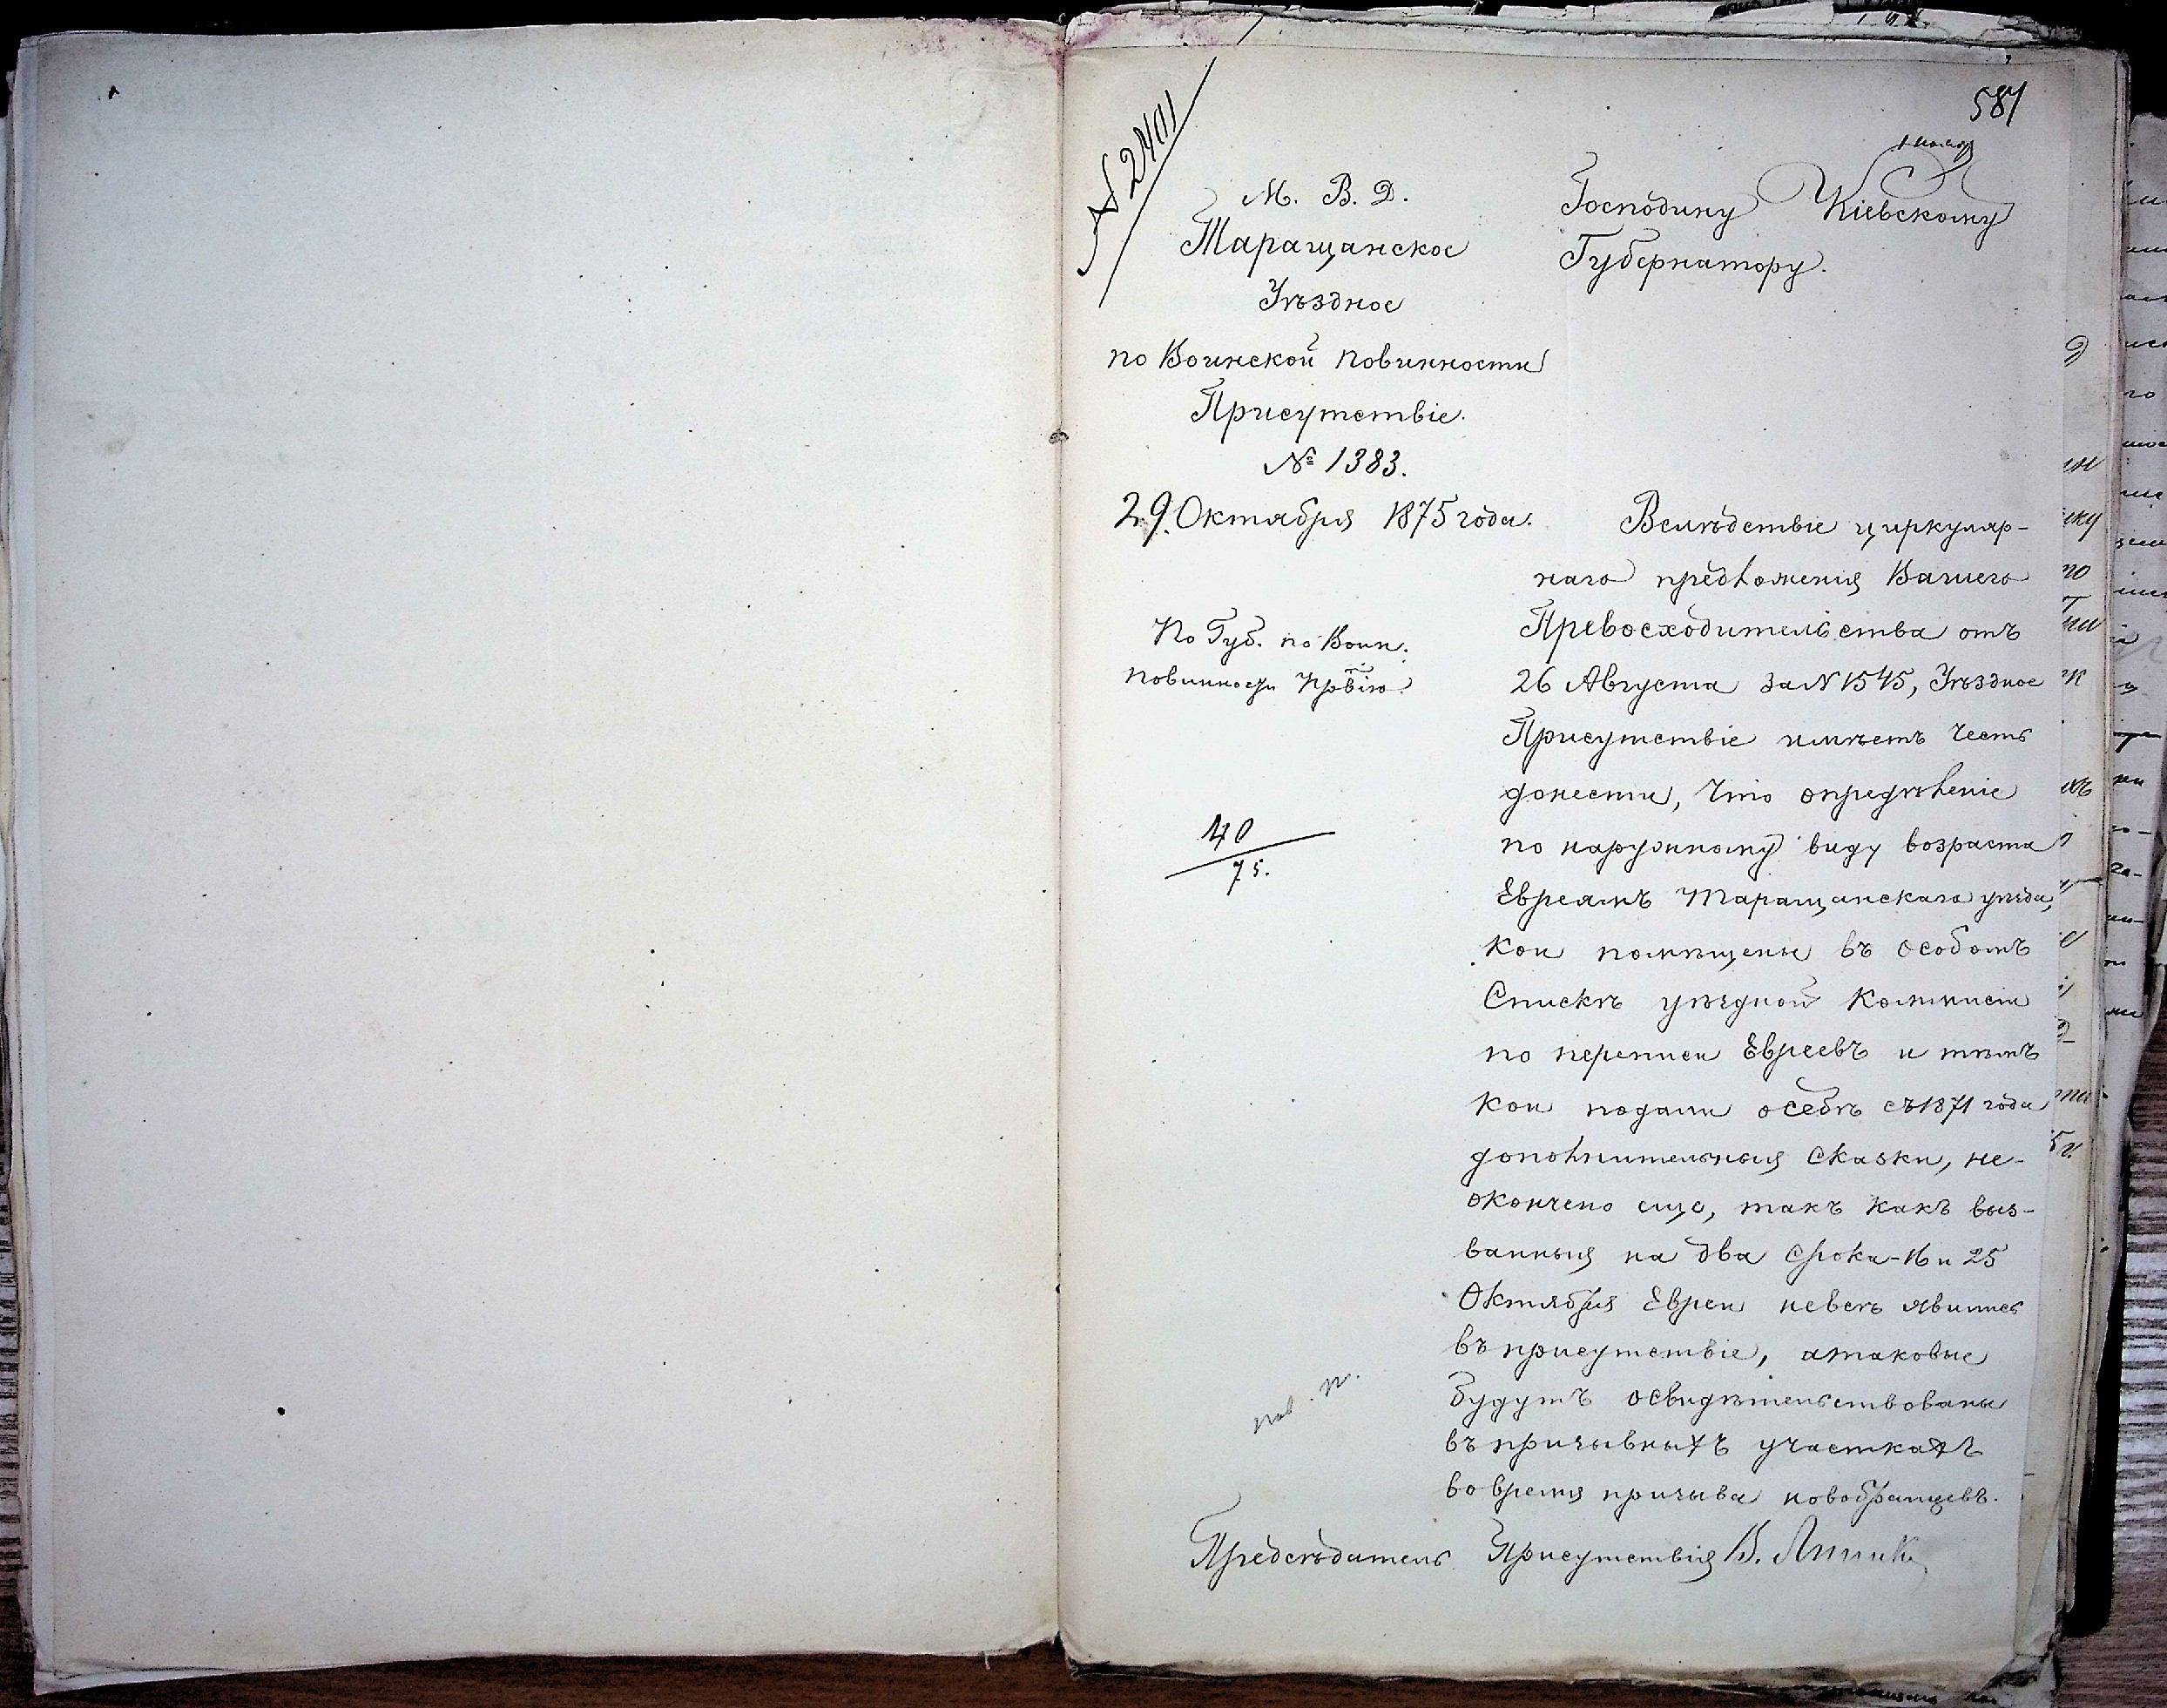 581
№ 2401
1 нояб
М. В. Д.
Таращанское
Уѣздное
по Воинской повинности
Присутствіе.
№ 1383.
29 Октября 1875 года.
Господину Кіевскому
Губернатору.
По Губ. по Воин.
повинности Пр͠вію
40
75.
Вслѣдствіе циркуляр-
наго предложенія Вашего
Превосходительства отъ
26 Августа за N 1545, Уѣздное
Присутствіе имѣетъ честь
донести, что опредѣленіе
по наружному виду возраста
Евреямъ Таращанскаго уѣзда,
кои помѣщены въ особомъ
Спискѣ уѣздной Коммисіи
по переписи Евреевъ и тѣмъ
кои подали осебѣ съ 1871 года
дополнительныя сказки, не-
окончено еще, такъ какъ выз-
ванныя на два срока-16 и 25
Октября Евреи невсѣ явились
въ присутствіе, атаковые
будутъ освидѣтельствованы
въ призывныхъ участкахъ
во время призыва новобранцевъ.
Предсѣдатель Присутствія В.